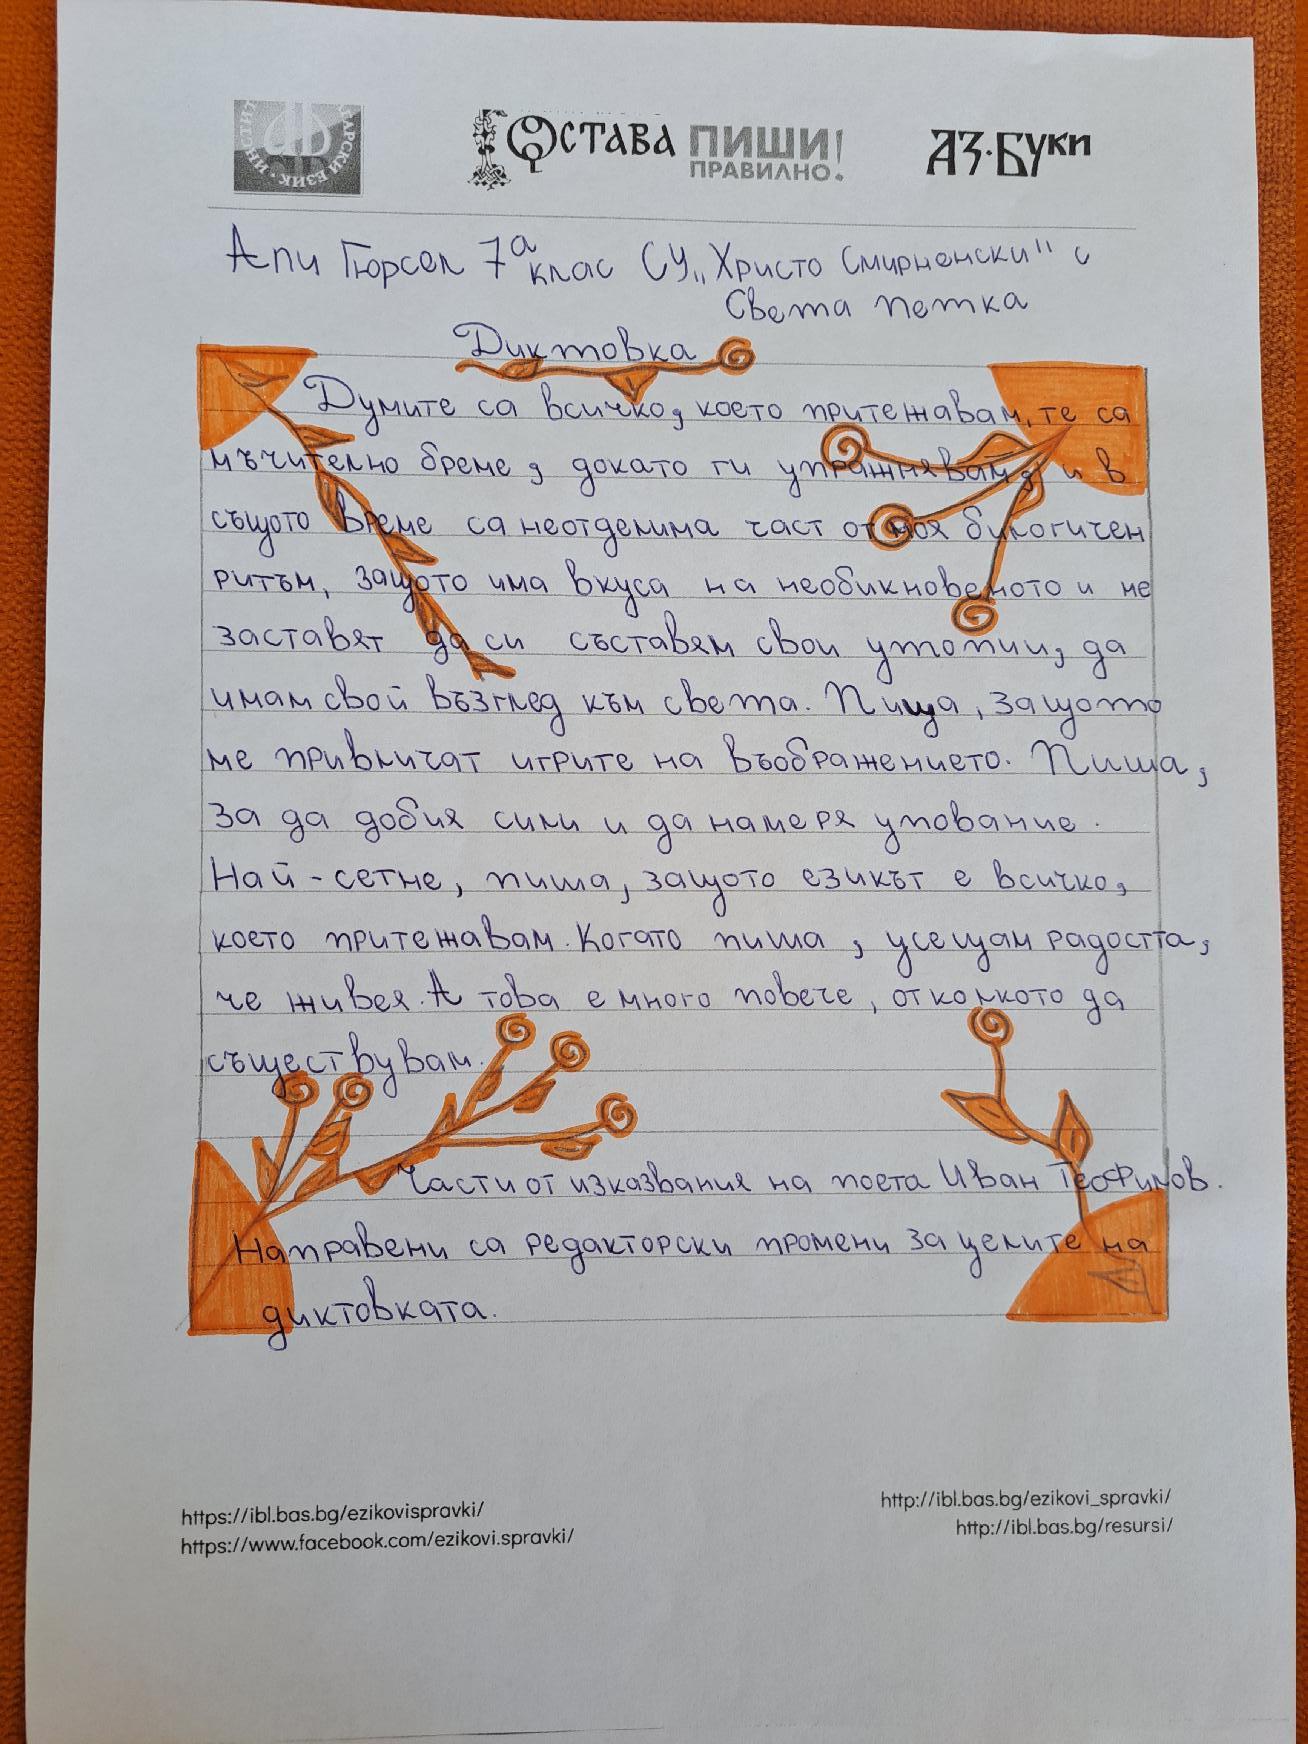 ИНСТИТ ЪЛГАРСКИ ЕЗИК
ОСТАВА ПИШИ ПРАВИЛНО!
АЗ·БУКИ
Апи Гюрсел 7а клас СУ „Христо Смирненски" с
Света петка
Диктовка
Думите са всичко, което притежавам, те са
мъчително бреме, докато ги упражнявам, и в
същото време са неотделима част от моя биологичен
ритъм, защото има вкуса на необикновеното и не
заставят да си съставям свои утопии, да
имам свой възглед към света. Пиша, защото
ме привличат игрите на въображението. Пиша,
за да добия сили и да намеря упование.
Най-сетне, пиша, защото езикът е всичко,
което притежавам. Когато пиша, усещам радостта,
че живея. А това е много повече, отколкото да
съществувам.
Части от изказвания на поета Иван Теофилов.
Направени са редакторски промени за целите на
диктовката.
https://ibl.bas.bg/ezikovispravki/
https://www.facebook.com/ezikovi.spravki/
http://ibl.bas.bg/ezikovi_spravki/
http://ibl.bas.bg/resursi/